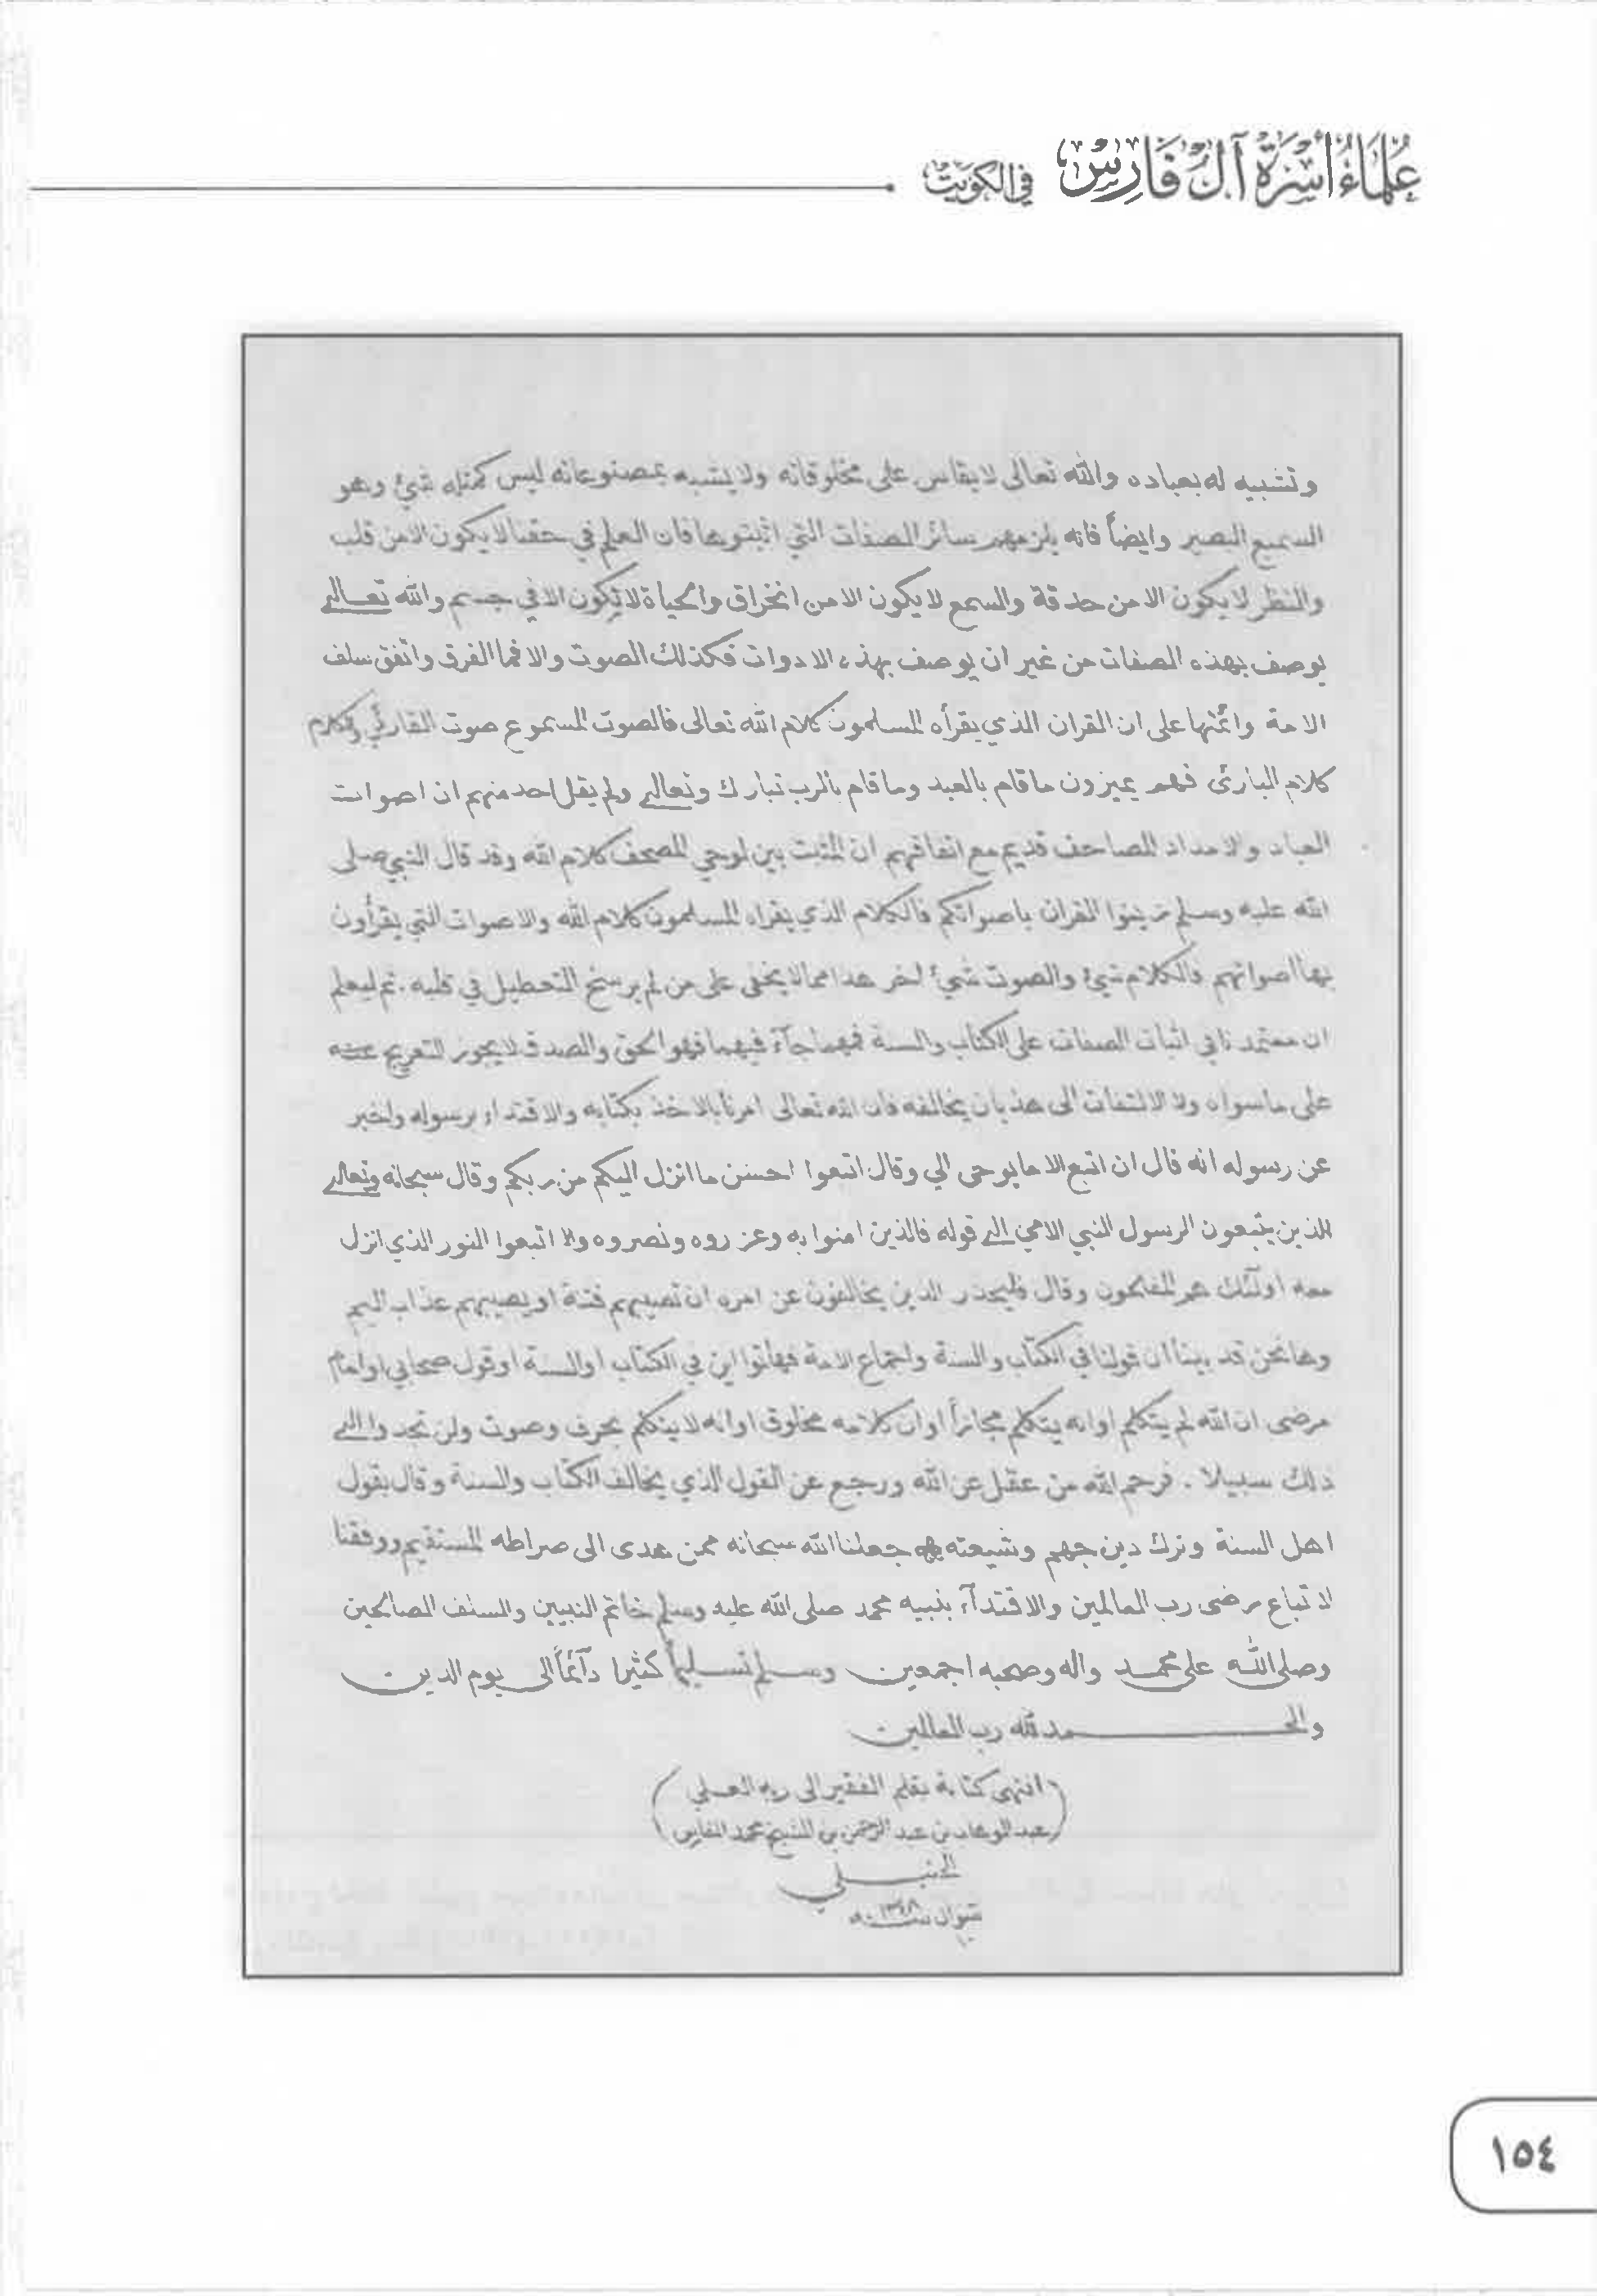 عُلَمَاءُ أُسْرَةِ آلِ فَارِسْ في الكويت
وتشبيه له بعباده والله تعالى لا يقاس على مخلوقاته ولا يشبه بمصنوعاته ليس كمثله شيئ وهو
السميع البصير وايضاً فانه يلزمهم سائر الصفات التي اثبتوها فان العلم في حقنا لا يكون الا من قلب
والنظر لا يكون الا من حدقة والسمع لا يكون الا من انخراق والحياة لا تكون الا في جسم والله تعالى
يوصف بهذه الصفات من غير ان يوصف بهذه الادوات فكذلك الصوت والا فما الفرق واتفق سلف
الامة وائمتها على ان القران الذي يقرأه المسلمون كلام الله تعالى فالصوت المسموع صوت القارئي والكلام
كلام البارئ فهم يميزون ما قام بالعبد وما قام بالرب تبارك وتعالى ولم يقل احد منهم ان اصوات
العباد والا مداد المصاحف قديم مع اتفاقهم ان المثبت بين لوحي المصحف كلام الله وقد قال النبي صلى
الله عليه وسلم زينوا القران باصواتكم فالكلام الذي يقراه المسلمون كلام الله والاصوات التي يقرأون
بها اصواتهم فالكلام شيئ والصوت شيئ اخر هذا مما لا يخفى على من لم يرسخ التعطيل في قلبه . ثم ليعلم
ان معتمدنا في اثبات الصفات على الكتاب والسنة فمهما جآء فيهما فهو الحق والصدق لا يجوز التعريج عنه
على ما سواه ولا الالتفات الى هذيان يخالفه فان الله تعالى امرنا بالاخذ بكتابه والاقتداء برسوله واخبر
عن رسوله انه قال ان اتبع الا ما يوحى الي وقال اتبعوا احسن ما انزل اليكم من ربكم وقال سبحانه وتعالى
الذين يتبعون الرسول النبي الامي الى قوله فالذين امنوا به وعزروه ونصروه واتبعوا النور الذي انزل
معه اولٓئك هم المفلحون وقال فليحذر الذين يخالفون عن امره ان تصيبهم فتنة او يصيبهم عذاب اليم
وها نحن قد بينا ان قولنا في الكتاب والسنة واجماع الامة فهاتوا اين في الكتاب او السنة او قول صحابي او امام
مرضى ان الله لم يتكلم او انه يتكلم مجازاً او ان كلامه مخلوق او انه لا يتكلم بحرف وصوت ولن تجدوا الى
ذلك سبيلا . فرحم الله من عقل عن الله ورجع عن القول الذي يخالف الكتاب والسنة وقال بقول
اهل السنة وترك دين جهم وشيعته جعلنا الله سبحانه ممن هدى الى صراطه المستقيم ووفقنا
لاتباع مرضى رب العالمين والاقتدآء بنبيه محمد صلى الله عليه وسلم خاتم النبيين والسلف الصالحين
وصلى الله على محمد واله وصحبه اجمعين وسلم تسليماً كثيرا دآئماً الى يوم الدين
والحمد لله رب العالمين
(انتهى كتابة بقلم الفقير الى ربه العلي
عبد الوهاب بن عبد الرحمن بن الشيخ محمد الفارس)
الحنبلي
شوال سنة ١٣٤٨
١٥٤